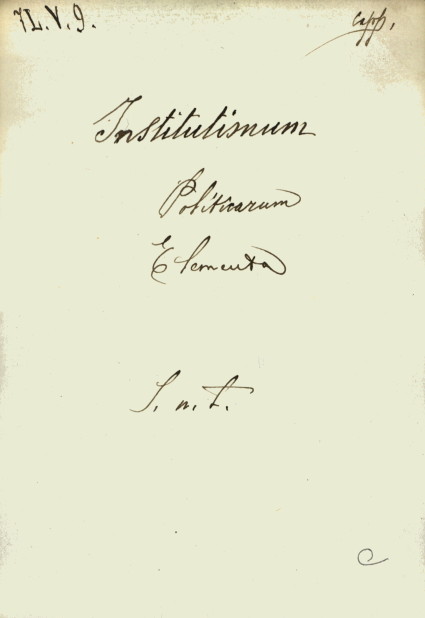 7L.V.9.
Capp.
Institutionum
Politicarum
Elementa
S. n. t.
C